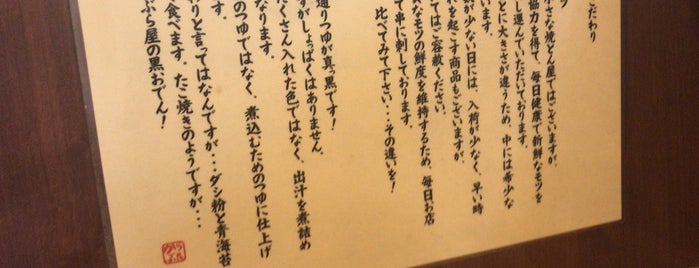 こだわり
小さな焼とん屋ではございますが、
協力を得て、毎日健康で新鮮なモツを
し運んでいただいております。
ごとに大きさが違うため、中には希少な
います。
が少ない日には、入荷が少なく、早い時
れを起こす商品もございますが、
てはご容赦ください。
なモツの鮮度を維持するため、毎日お店
て串に刺しております。
比べてみて下さい・・・その違いを！
通りつゆが真っ黒です！
すがしょっぱくはありません。
たくさん入れた色ではなく、出汁を煮詰め
なります。
のつゆではなく、煮込むためのつゆに仕上げ
す。
りと言ってはなんですが・・・ダシ粉と青海苔
食べます。たこ焼きのようですが・・・
ぶら屋の黒おでん！